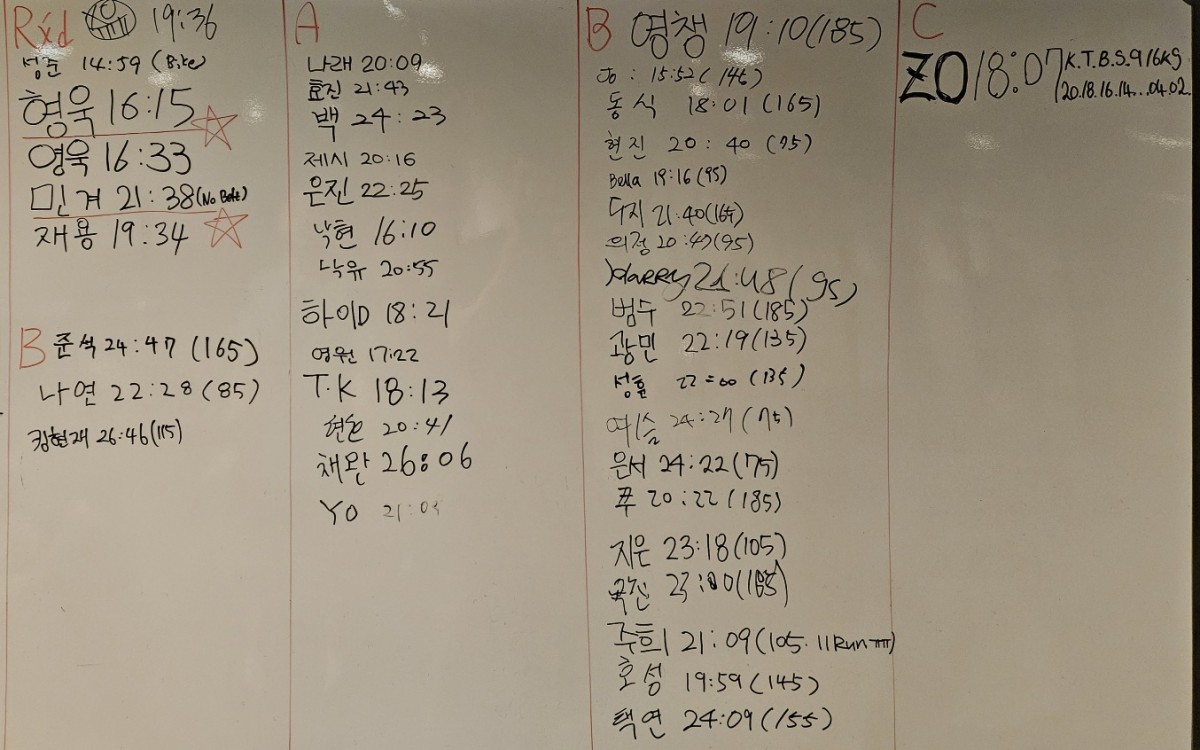 Rxd 19:36
성준 14:59 (Bike)
형욱 16:15
영욱 16:33
민겨 21:38 (No Belt)
재용 19:34
B 준석 24:47 (165)
나연 22:28 (85)
김현재 26:46 (115)
A
나래 20:09
효진 21:43
백 24:23
제시 20:16
은진 22:25
낙현 16:10
낙유 20:55
하이D 18:21
영원 17:22
T.K 18:13
20:41
채완 26:06
YO 21:03
B 영챙 19:10 (185)
Jo: 15:52 (145)
동식 18:01 (165)
현진 20:40 (75)
Bella 19:16 (95)
다지 21:40 (165)
의정 20:47 (95)
Harry 21:48 (95)
범수 22:51 (185)
광민 22:19 (135)
성훈 22:00 (135)
예슬 24:27 (75)
은서 24:22 (75)
푸 20:22 (185)
지은 23:18 (105)
23:00 (185)
주희 21:09 (105. 11Run ㅠㅠ)
호성 19:59 (145)
택연 24:09 (155)
C
ZO 18:07 K.T.B.S.9 16KG
20.18.16.14...04.02.